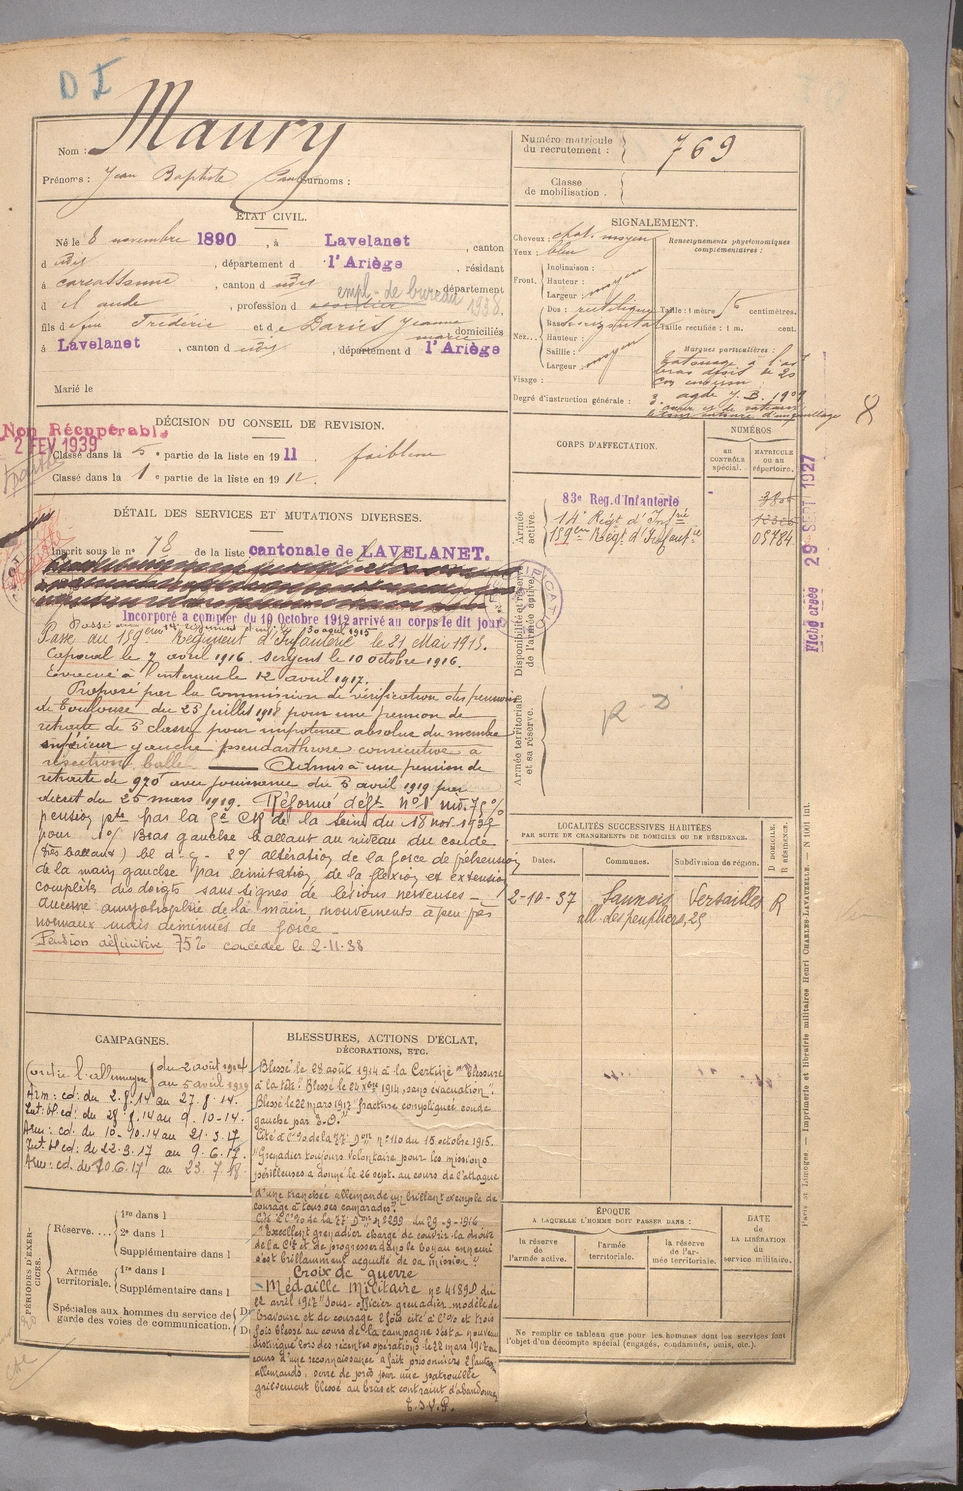 D I
Nom : Maury
Prénoms : Jean Baptiste Paul Surnoms :
Numéro matricule du recrutement : 769
Classe de mobilisation .
ÉTAT CIVIL.
Né le 8 novembre 1890 , à Lavelanet , canton
d udit , département d l'Ariège , résidant
à carcassonne , canton d udit , département
d el aude , profession d empl- de bureau 1938.
fils d e feu Frédéric et d e Dariès Jeanne marie domiciliés
à Lavelanet , canton d udit , département d l'Ariège
Marié le
SIGNALEMENT.
Cheveux : chat. moyen
Yeux : bleu
Renseignements physionomiques complémentaires :
Front. Inclinaison :
Hauteur : moyen
Largeur :
Nez... Dos : rectiligne
Base : horizontal
Hauteur :
Saillie : moyen
Largeur :
Visage :
Taille : 1 mètre centimètres.
Taille rectifiée : 1 m. cent.
Marques particulières :
tatouage à l'avt
bras droit
Degré d'instruction générale : 3.
8
DÉCISION DU CONSEIL DE REVISION.
Non Récupérable
2 FEV 1939
Classé dans la 5e partie de la liste en 1911 . faiblesse
Classé dans la 1e partie de la liste en 1912.
DÉTAIL DES SERVICES ET MUTATIONS DIVERSES.
Inscrit sous le n° 78 de la liste cantonale de LAVELANET.
Incorporé à compter du 10 Octobre 1912 arrivé au corps le dit jour
Passé au 14e régiment d'inf. 30 août 1915
Passe au 159ème Régiment d'Infanterie le 21 Mai 1915.
Caporal le 7 avril 1916. Sergent le 10 octobre 1916.
Evacué à l'intérieur le 12 avril 1917.
Proposé par la commission de vérification des pensions
de Toulouse du 23 juillet 1918 pour une pension de
retraite de 5 classe pour impotence absolue du membre
supérieur gauche pseudarthrose consécutive à
résection balle — Admis à une pension de
retraite de 970f avec jouissance du 5 avril 1919 par
décret du 25 mars 1919. Réformé déft n°1 inv. 75%
pension pte par la 2e CR de la Seine du 18 nov. 1937
pour 1°/ Bras gauche ballant au niveau du coude
(très ballant) bl d. g. - 2°/ altération de la force de préhension
de la main gauche par limitation de la flexion et extension
complète des doigts sans signes de lésions nerveuses -
aucune amyotrophie de la main, mouvements à peu près
normaux mais diminués de force -
Pension définitive 75% concédée le 2-11-38
CORPS D'AFFECTATION.
NUMÉROS
AU CONTRÔLE spécial.
MATRICULE ou au répertoire.
Armée active.
83e Reg. d'Infanterie
14e Régt d'Infrie
159ème Régt d'Infant.ie 05784
Disponibilité et réserve de l'armée active.
Armée territoriale et sa réserve.
R - D
Fiche créée 29 SEPT 1927
LOCALITÉS SUCCESSIVES HABITÉES
PAR SUITE DE CHANGEMENTS DE DOMICILE OU DE RÉSIDENCE.
Dates. Communes. Subdivision de région. D DOMICILE. R RÉSIDENCE.
2-10-37 Sannois Versailles R
all. des peupliers, 25
CAMPAGNES.
Contre l'allemagne du 2 août 1914
au 5 avril 1919
Arm : cd : du 2. 8. 14 au 27. 8. 14.
Int : bl cd : du 28. 8. 14 au 9. 10-14.
Arm : cd. du 10-10.14 au 21. 3. 17
Int. bl cd : du 22. 3. 17 au 9. 6. 17.
Arm : cd. du 10. 6. 17 au 23. 7. 18.
BLESSURES, ACTIONS D'ÉCLAT,
DÉCORATIONS, ETC.
Blessé le 28 août 1914 à la Certine "Blessure
à la tête". Blessé le 24 xbre 1914, sans évacuation".
Blessé le 22 mars 1917 "fracture compliquée coude
gauche par E.O."
Cité à l'Ordre de la 77e Don n° 110 du 15 octobre 1915.
"Grenadier toujours volontaire pour les missions
périlleuses a donné le 26 sept. au cours de l'attaque
d'une tranchée allemande un brillant exemple de
courage à tous ses camarades".
Cité à l'Ordre de la 77e Don n° 2299 du 29-9-1916.
"Excellent grenadier chargé de couvrir la droite
de la Cie et de progresser dans le boyau ennemi
s'est brillamment acquitté de sa mission".
Croix de guerre
- Médaille Militaire n° 41898 du
22 avril 1917 "Sous-officier grenadier modèle de
bravoure et de courage 2 fois cité à l'ordre et trois
fois blessé au cours de la campagne s'est à nouveau
distingué lors des récentes opérations le 22 mars 1917 au
cours d'une reconnaissance a fait prisonniers 2 fantassins
allemands, serré de près par une patrouille
grièvement blessé au bras et contraint d'abandonner
T.S.V.P.
PÉRIODES D'EXERCICES.
Réserve.... 1re dans l
2e dans l
Supplémentaire dans l
Armée territoriale. 1re dans l
Supplémentaire dans l
Spéciales aux hommes du service de garde des voies de communication.
ÉPOQUE
A LAQUELLE L'HOMME DOIT PASSER DANS :
la réserve de l'armée active.
l'armée territoriale.
la réserve de l'armée territoriale.
DATE de LA LIBÉRATION du service militaire.
Ne remplir ce tableau que pour les hommes dont les services font
l'objet d'un décompte spécial (engagés, condamnés, omis, etc.).
Paris et Limoges. — Imprimerie et librairie militaires Henri CHARLES-LAVAUZELLE. — N 1001 int.